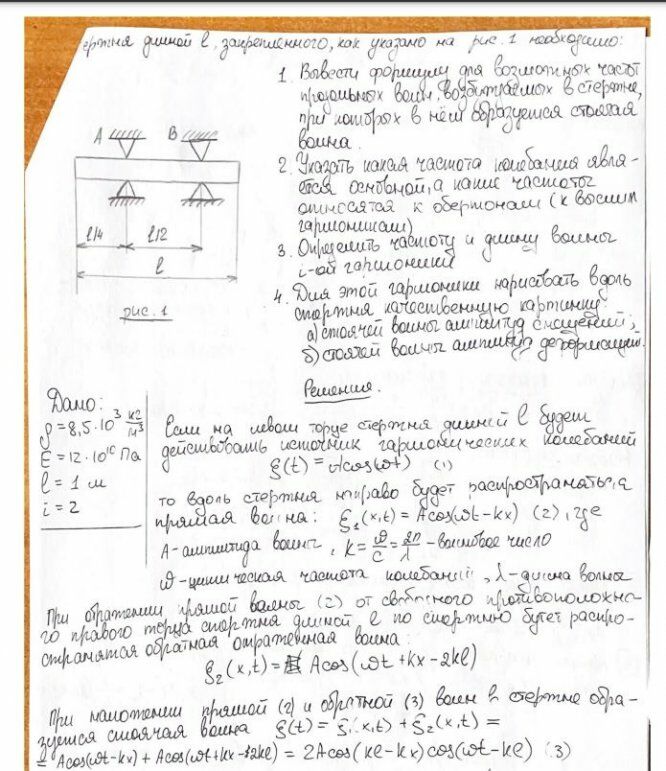 ержня длиной l, закрепленного, как указано на рис. 1 необходимо:
1. Вывести формулу для возможных частот
продольных волн, возбуждаемых в стержне,
при которых в нём образуется стоячая
волна.
2. Указать какая частота колебания явля-
ется основной, а какие частоты
относятся к обертонам (к высшим
гармоникам)
3. Определить частоту и длину волны
i-ой гармоники
4. Для этой гармоники нарисовать вдоль
стержня качественную картинку:
а) стоячей волны амплитуд смещений;
б) стоячей волны амплитуд деформации.
A B
l/4 l/2
l
рис. 1
Решение.
Дано:
ρ = 8,5·10³ кг/м³
E = 12·10¹⁰ Па
l = 1 м
i = 2
Если на левом торце стержня длиной l будет
действовать источник гармонических колебаний
ξ(t) = Acos(ωt) (1)
то вдоль стержня направо будет распространяться
прямая волна: ξ₁(x,t) = Acos(ωt-kx) (2), где
A-амплитуда волны, k = ω/c = 2π/λ - волновое число
ω-циклическая частота колебаний, λ-длина волны
При отражении прямой волны (2) от свободного противоположно-
го правого торца стержня длиной l по стержню будет распро-
странятся обратная отраженная волна:
ξ₂(x,t) = Acos(ωt+kx-2kl)
При наложении прямой (2) и обратной (3) волн в стержне обра-
зуется стоячая волна ξ(t) = ξ₁(x,t) + ξ₂(x,t) =
= Acos(ωt-kx) + Acos(ωt+kx-2kl) = 2Acos(kl-kx)cos(ωt-kl) (3)